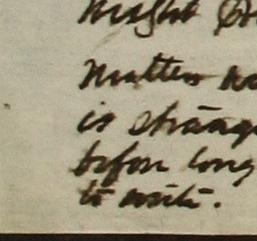 might
matters
is strang
before long
to write.